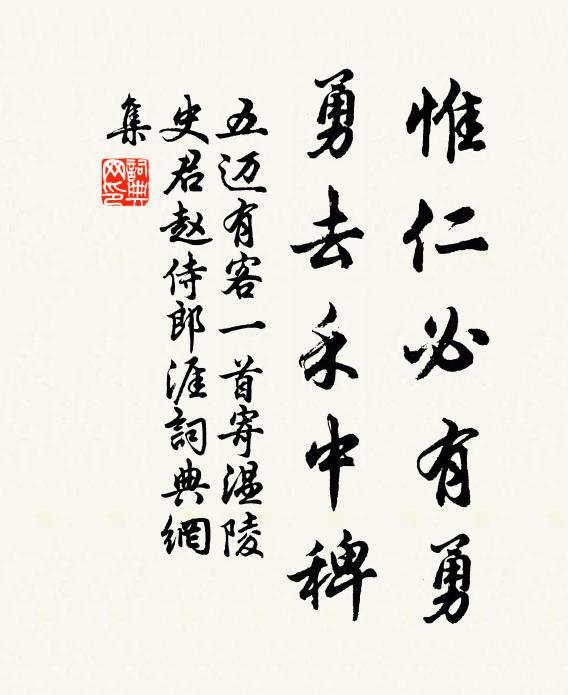 惟仁必有勇
勇去禾中稗
五迈有客一首寄温陵
史君赵侍郎涯詞典網
集
詞典
网印